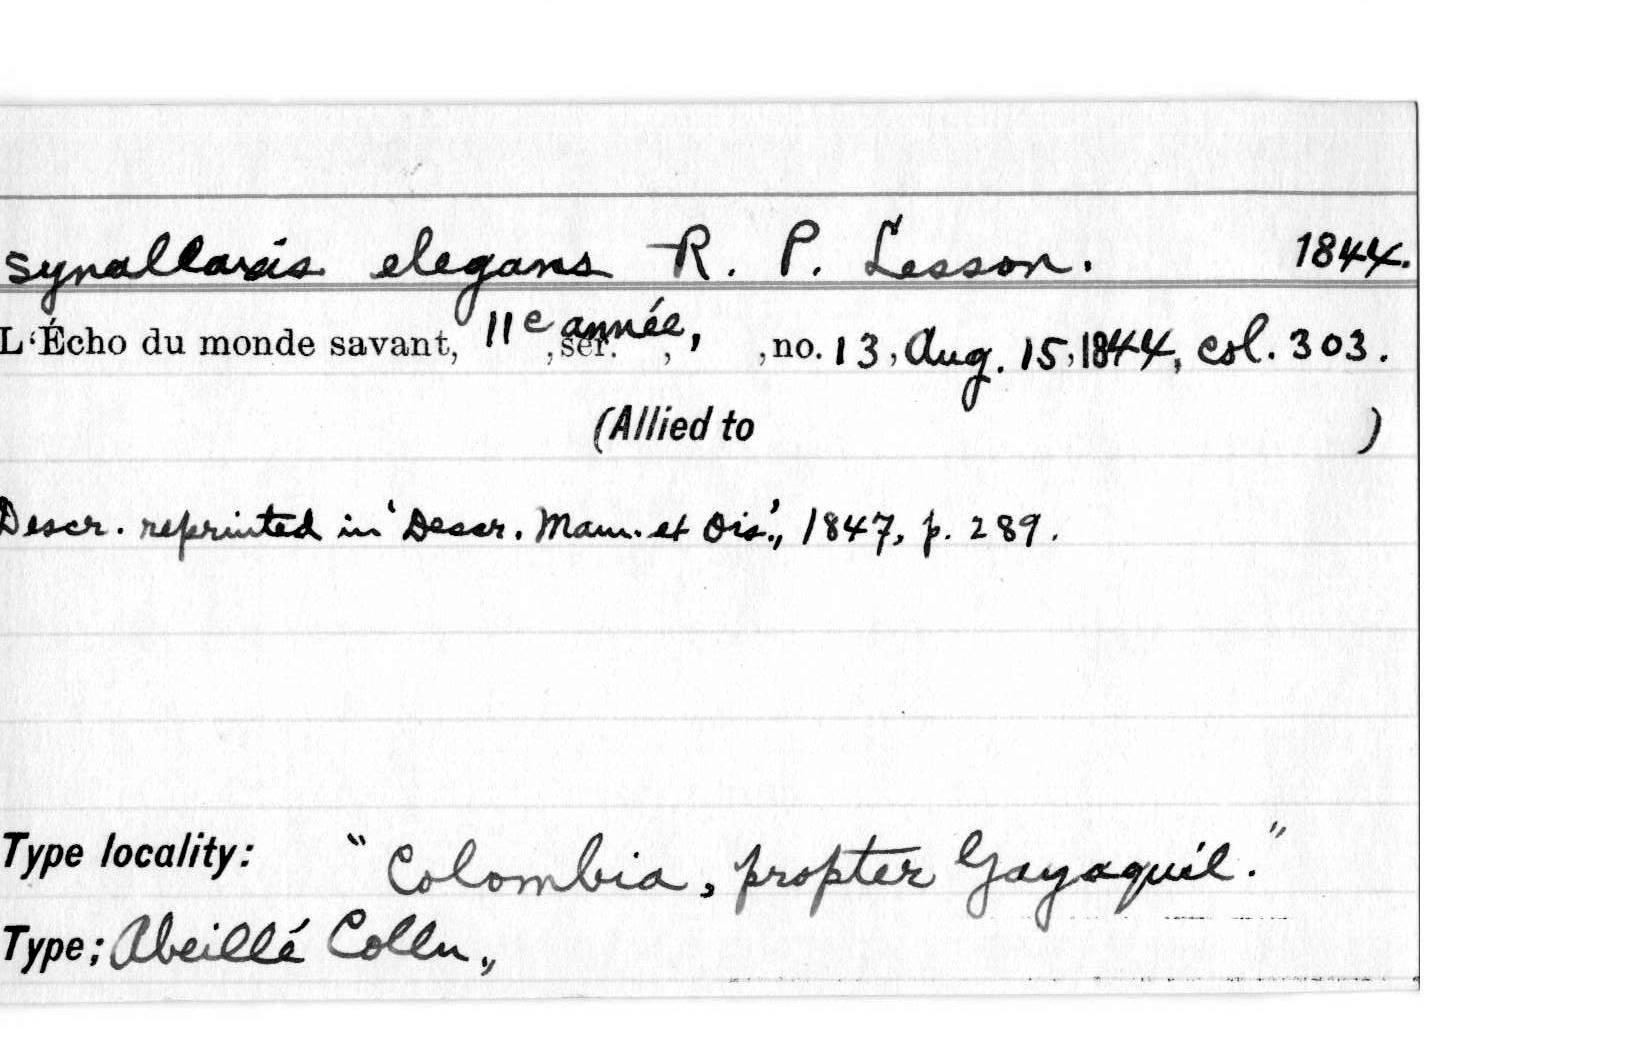 Synallaxis elegans R. P. Lesson. 1844.
L'Écho du monde savant, 11e année, , ser. , , no. 13, Aug. 15, 1844, col. 303.
(Allied to )
Descr. reprinted in 'Descr. Mam. et Ois.', 1847, p. 289.
Type locality: "Colombia, propter Gayaquil."
Type; Abeillé Colln.,